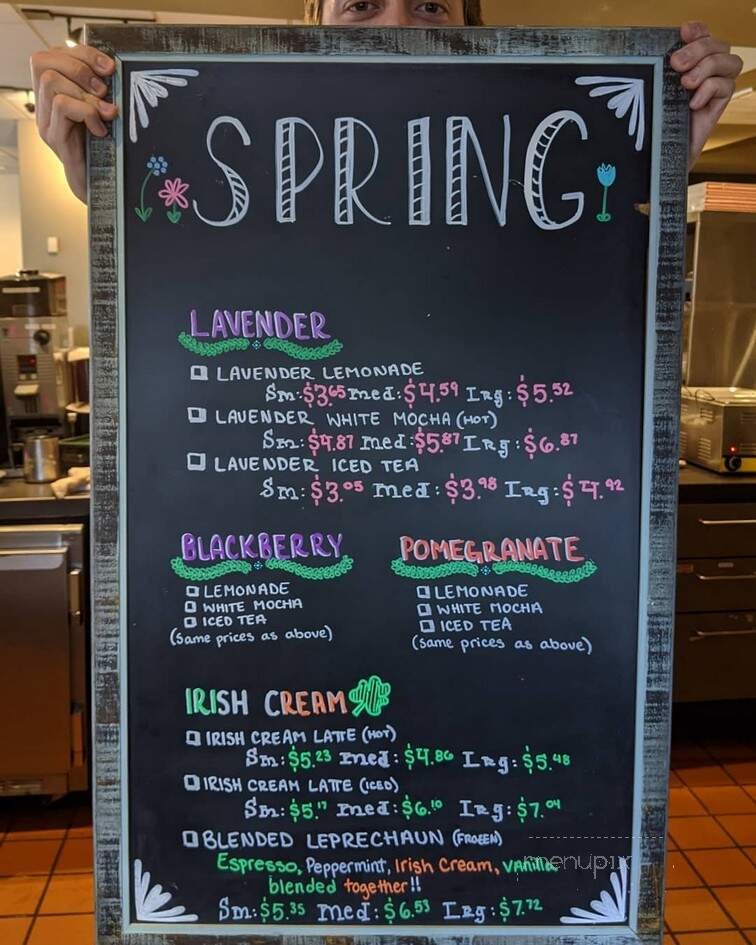 SPRING
LAVENDER
LAVENDER LEMONADE
Sm:$3.65 med:$4.59 Lrg:$5.52
LAVENDER WHITE MOCHA (HOT)
Sm:$4.87 med:$5.87 Lrg:$6.87
LAVENDER ICED TEA
Sm:$3.05 med:$3.98 Lrg:$4.92
BLACKBERRY
LEMONADE
WHITE MOCHA
ICED TEA
(Same prices as above)
POMEGRANATE
LEMONADE
WHITE MOCHA
ICED TEA
(same prices as above)
IRISH CREAM
IRISH CREAM LATTE (HOT)
Sm:$5.23 med:$4.86 Lrg:$5.48
IRISH CREAM LATTE (ICED)
Sm:$5.17 med:$6.10 Lrg:$7.04
BLENDED LEPRECHAUN (FROZEN)
Espresso, Peppermint, Irish Cream, vanilla
blended together!!
Sm:$5.35 Med:$6.53 Lrg:$7.72
menupix